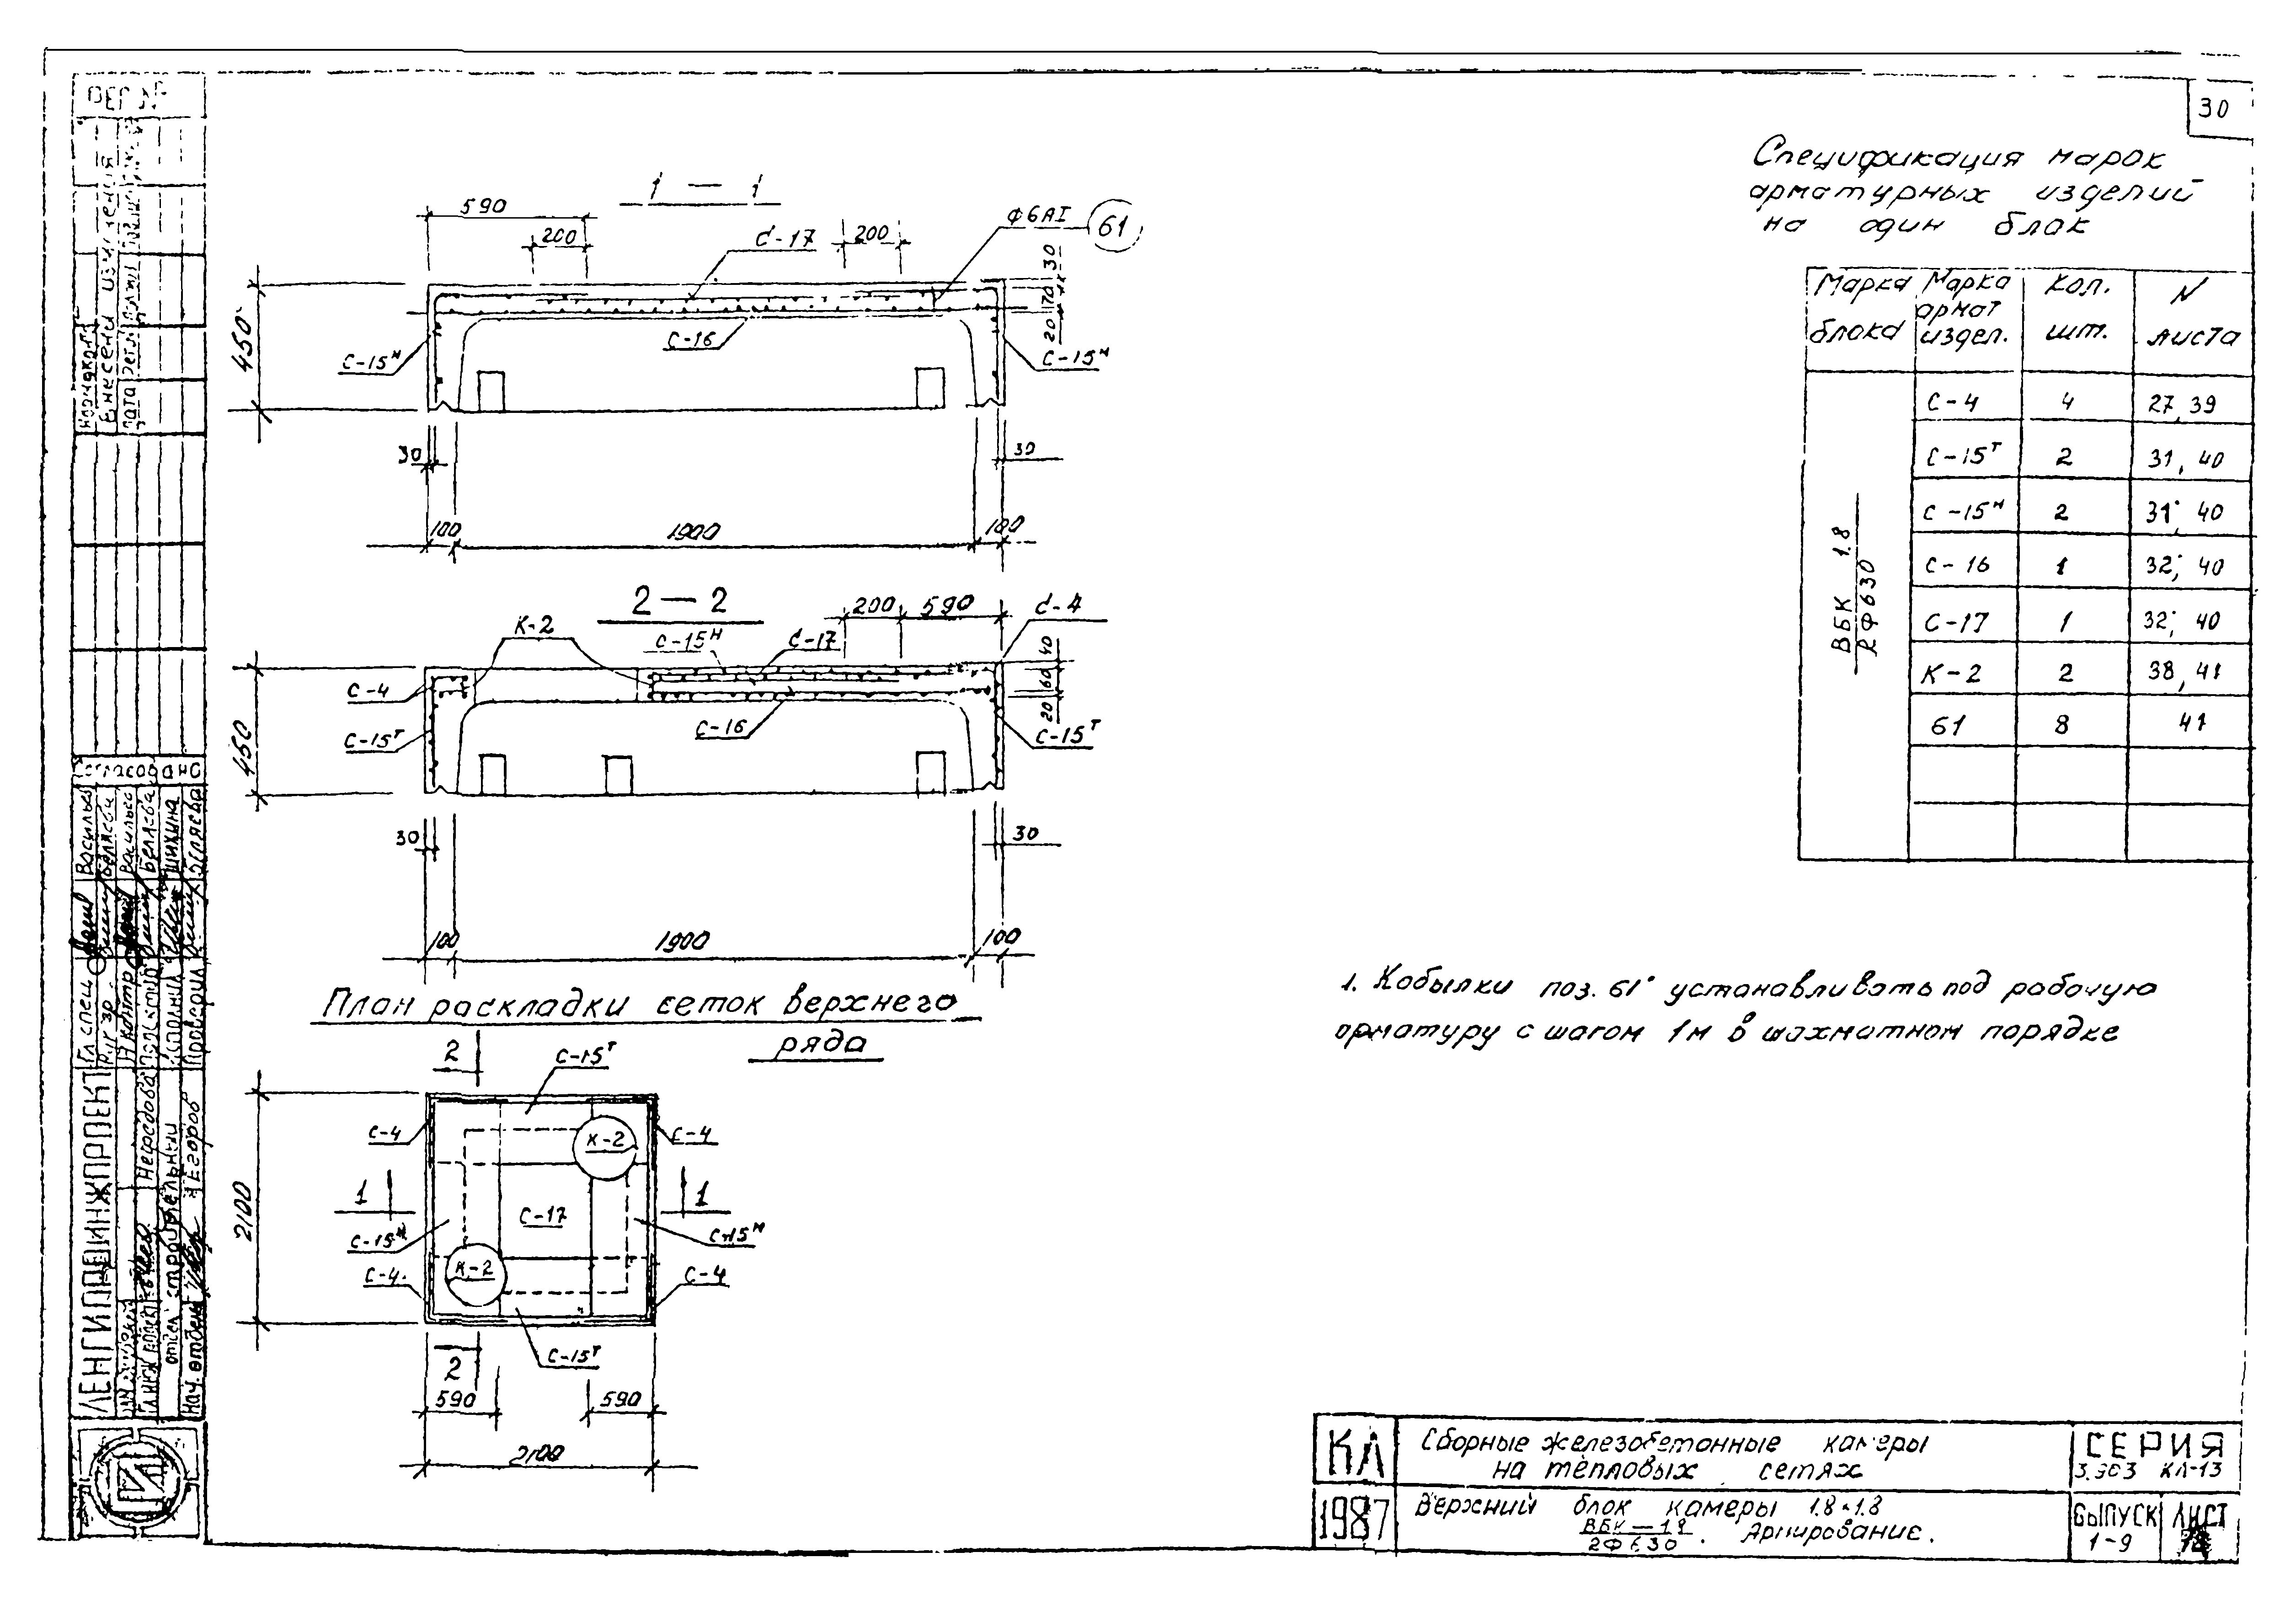 30
Спецификация марок
арматурных изделий
на один блок
Марка блока | Марка армат издел. | Кол. шт. | N листа
ВБК 1.8
2Ф630
С-4 | 4 | 27, 39
С-15Т | 2 | 31, 40
С-15Н | 2 | 31, 40
С-16 | 1 | 32, 40
С-17 | 1 | 32, 40
К-2 | 2 | 38, 41
61 | 8 | 41
1 — 1
590
200
С-17
200
Ф6АI
61
30
70
20
450
С-15Н
С-16
С-15Н
30
30
100
1900
100
2 — 2
200
590
С-4
К-2
С-15Н
С-17
40
60
20
С-4
С-15Т
С-16
С-15Т
450
30
30
100
1900
100
План раскладки сеток верхнего
ряда
2
С-15Т
С-4
К-2
С-4
1
1
2100
С-17
С-15Н
С-15Н
С-4
К-2
С-4
2
С-15Т
590
590
2100
1. Кобылки поз. 61 устанавливать под рабочую
арматуру с шагом 1м в шахматном порядке
КЛ
Сборные железобетонные камеры
на тепловых сетях
СЕРИЯ
3.903 КЛ-13
1987
Верхний блок камеры 1.8×1.8
ВБК — 1.8
2Ф630 . Армирование.
ВЫПУСК
1-9
ЛИСТ
Внесены изменения
Согласовано
Гл спец
Н контр
Исполнил
Проверил
Шихина
ЛЕНГИПРОИНЖПРОЕКТ
отдел строительный
Нач. отдела
Егоров